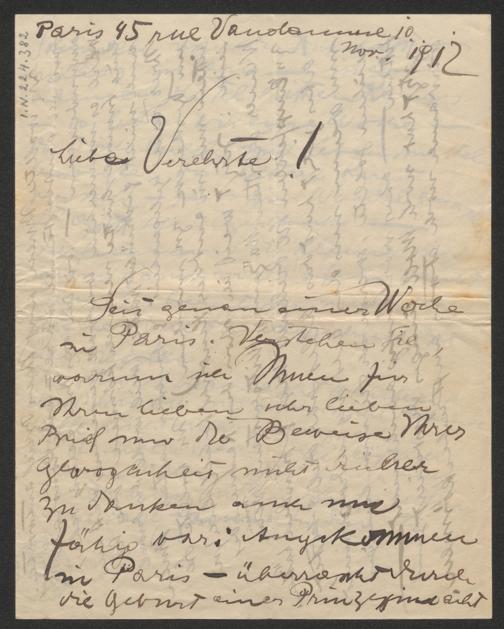 Paris 45 rue Vandamme 10
Nov. 1912
I.N. 224.382
Liebe Verehrte!
Seit genau einer Woche
in Paris. Verstehen Sie,
warum ich Ihnen für
Ihren lieben sehr lieben
Brief und die Beweise Ihrer
Gewogenheit nicht früher
zu danken auch nur
fähig war: Angekommen
in Paris – überrascht durch
die Geburt eines